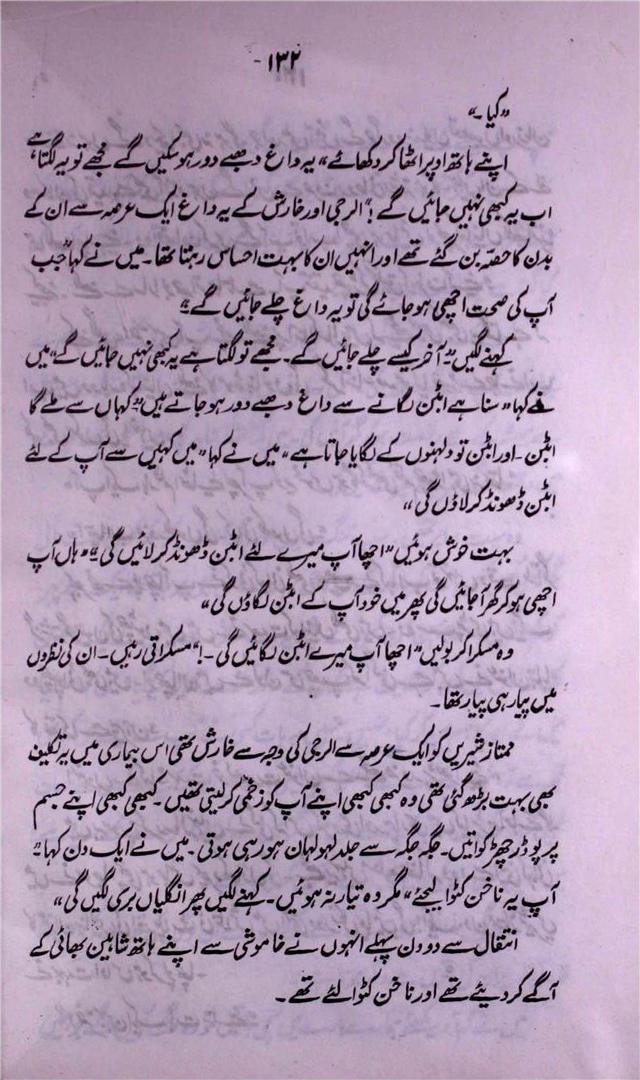 -۱۳۲
”کیا۔“
اپنے ہاتھ اوپر اٹھا کر دکھائے ”یہ داغ دھبے دور ہو سکیں گے مجھے تو یہ لگتا ہے
اب یہ کبھی نہیں جائیں گے !“ الرجی اور خارش کے یہ داغ ایک عرصہ سے ان کے
بدن کا حصّہ بن گئے تھے اور انہیں ان کا بہت احساس رہتا تھا۔ میں نے کہا ”جب
آپ کی صحت اچھی ہو جائے گی تو یہ داغ چلے جائیں گے۔“
کہنے لگیں ”آخر کیسے چلے جائیں گے۔ مجھے تو لگتا ہے یہ کبھی نہیں جائیں گے“ میں
نے کہا ”سنا ہے ابٹن لگانے سے داغ دھبے دور ہو جاتے ہیں“ ”کہاں سے ملے گا
ابٹن۔ اور ابٹن تو دلہنوں کے لگایا جاتا ہے“ میں نے کہا ”میں کہیں سے آپ کے لئے
ابٹن ڈھونڈ کر لاؤں گی“
بہت خوش ہوئیں ”اچھا آپ میرے لئے ابٹن ڈھونڈ کر لائیں گی“ ”ہاں آپ
اچھی ہو کر گھر آجائیں گی پھر میں خود آپ کے ابٹن لگاؤں گی“
وہ مسکرا کر بولیں ”اچھا آپ میرے ابٹن لگائیں گی۔!“ مسکراتی رہیں۔ ان کی نظروں
میں پیار ہی پیار تھا۔
ممتاز شیریں کو ایک عرصہ سے الرجی کی وجہ سے خارش تھی اس بیماری میں یہ تکلیف
بھی بہت بڑھ گئی تھی وہ کبھی کبھی اپنے آپ کو زخمی کر لیتی تھیں۔ کبھی کبھی اپنے جسم
پر پوڈر چھڑکواتیں۔ جگہ جگہ سے جلد لہولہان ہو رہی ہوتی۔ میں نے ایک دن کہا ”
آپ یہ ناخن کٹوا لیجئے“ مگر وہ تیار نہ ہوئیں۔ کہنے لگیں پھر انگلیاں بری لگیں گی“
انتقال سے دو دن پہلے انہوں نے خاموشی سے اپنے ہاتھ شاہین بھائی کے
آگے کر دیئے تھے اور ناخن کٹوا لئے تھے۔